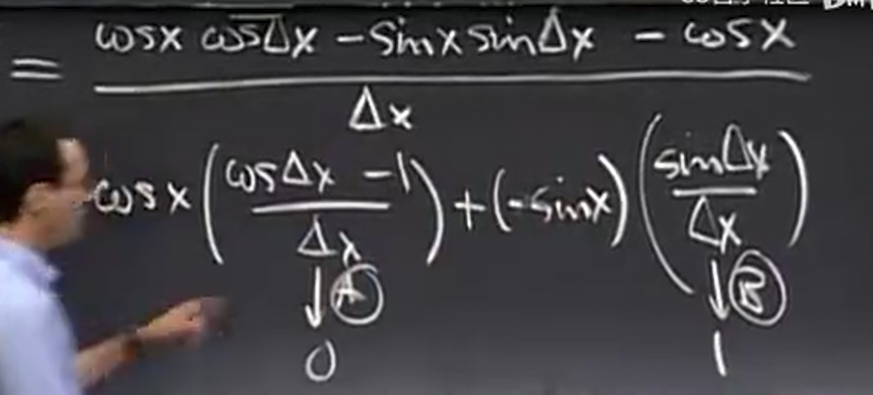 = (cosx cosΔx - sinx sinΔx - cosx) / Δx
cosx ((cosΔx - 1) / Δx) + (-sinx) (sinΔx / Δx)
↓ Ⓐ ↓ Ⓑ
0 1